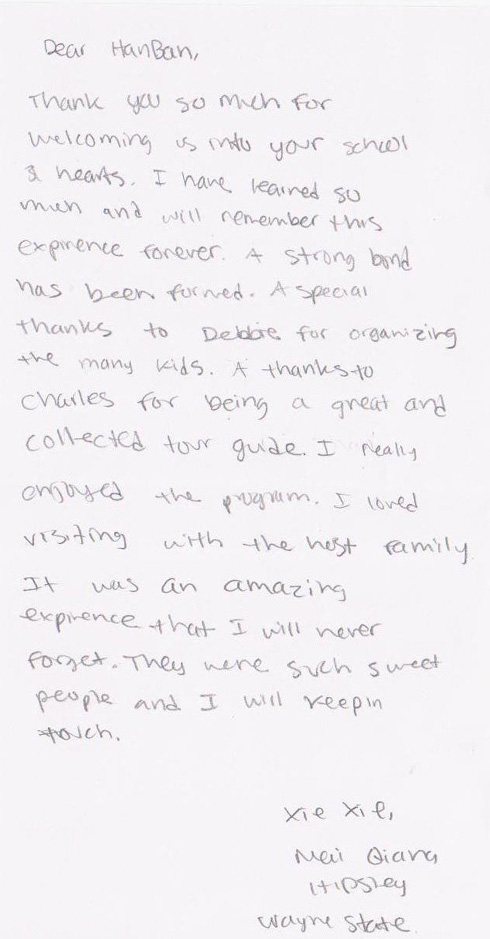 Dear HanBan,
Thank you so much for
welcoming us into your school
& hearts. I have learned so
much and will remember this
expirence forever. A strong bond
has been formed. A special
thanks to Debbie for organizing
the many kids. A thanks to
Charles for being a great and
collected tour guide. I really
enjoyed the program. I loved
visiting with the host family
It was an amazing
expirence that I will never
forget. They were such sweet
people and I will keep in
touch.
Xie Xie,
Mei Qiang
Wayne State